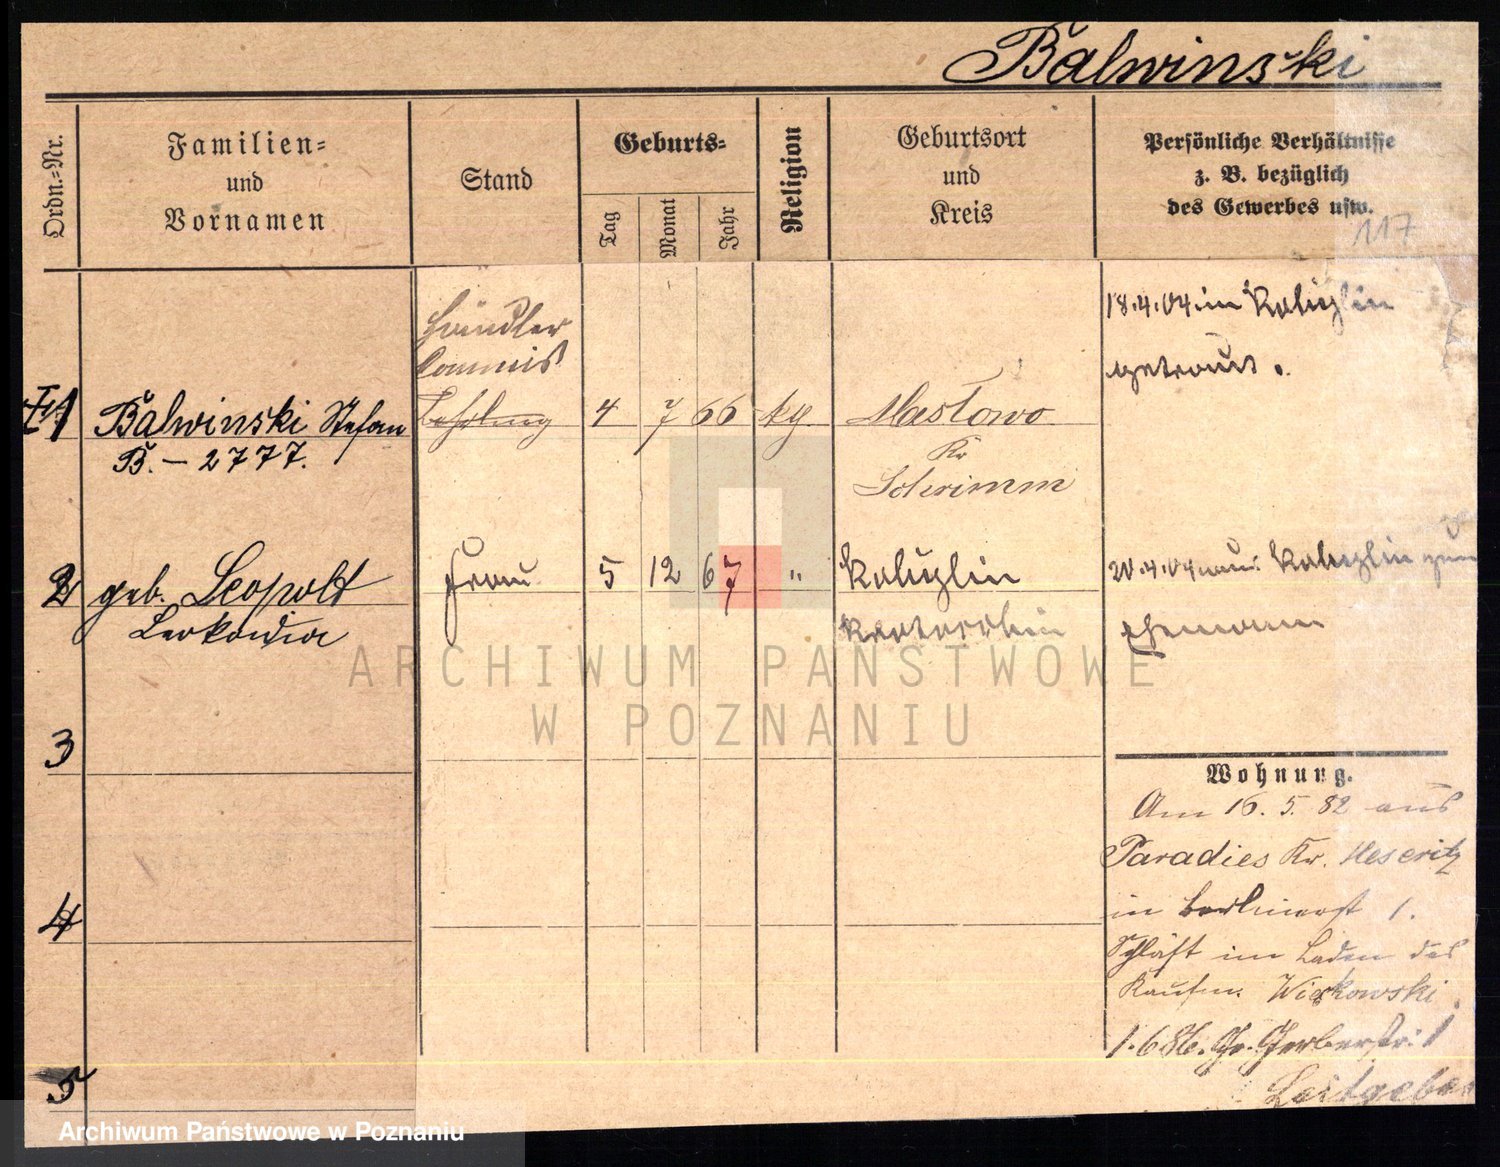 Balwinski
Ordn.=Nr.
Familien=
und
Vornamen
Stand
Geburts=
Tag
Monat
Jahr
Religion
Geburtsort
und
Kreis
Persönliche Verhältnisse
z. B. bezüglich
des Gewerbes usw.
117
Händler
Commis
Lehrling
18.4.04 in
getraut.
1
Balwinski Stefan
4 7 66 kg.
Mastowo
B. – 2777.
Kr
Schrimm
2
geb. Leopold
Leokadia
Frau
5 12 67 "
20.4.04 aus
Ehemann
3
Wohnung.
Am 16. 5. 82 aus
Paradies Kr. Meseritz
in Berlinerst 1.
4
Schläft im Laden des
Kaufm. Wiekowski.
1.6 86. Gr. Gerberstr. 1
5
Leitgeber
ARCHIWUM PAŃSTWOWE
W POZNANIU
Archiwum Państwowe w Poznaniu